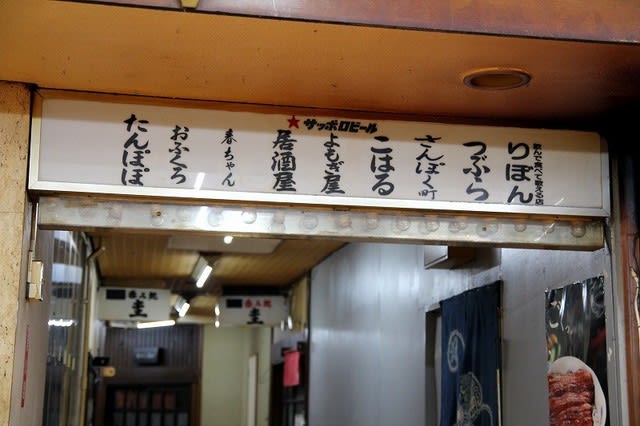 ★サッポロビール
飲んで食べて歌える店
りぼん
つぶら
さんぽく町
こはる
よもぎ屋
居酒屋
春ちゃん
おふくろ
たんぽぽ
圭
圭